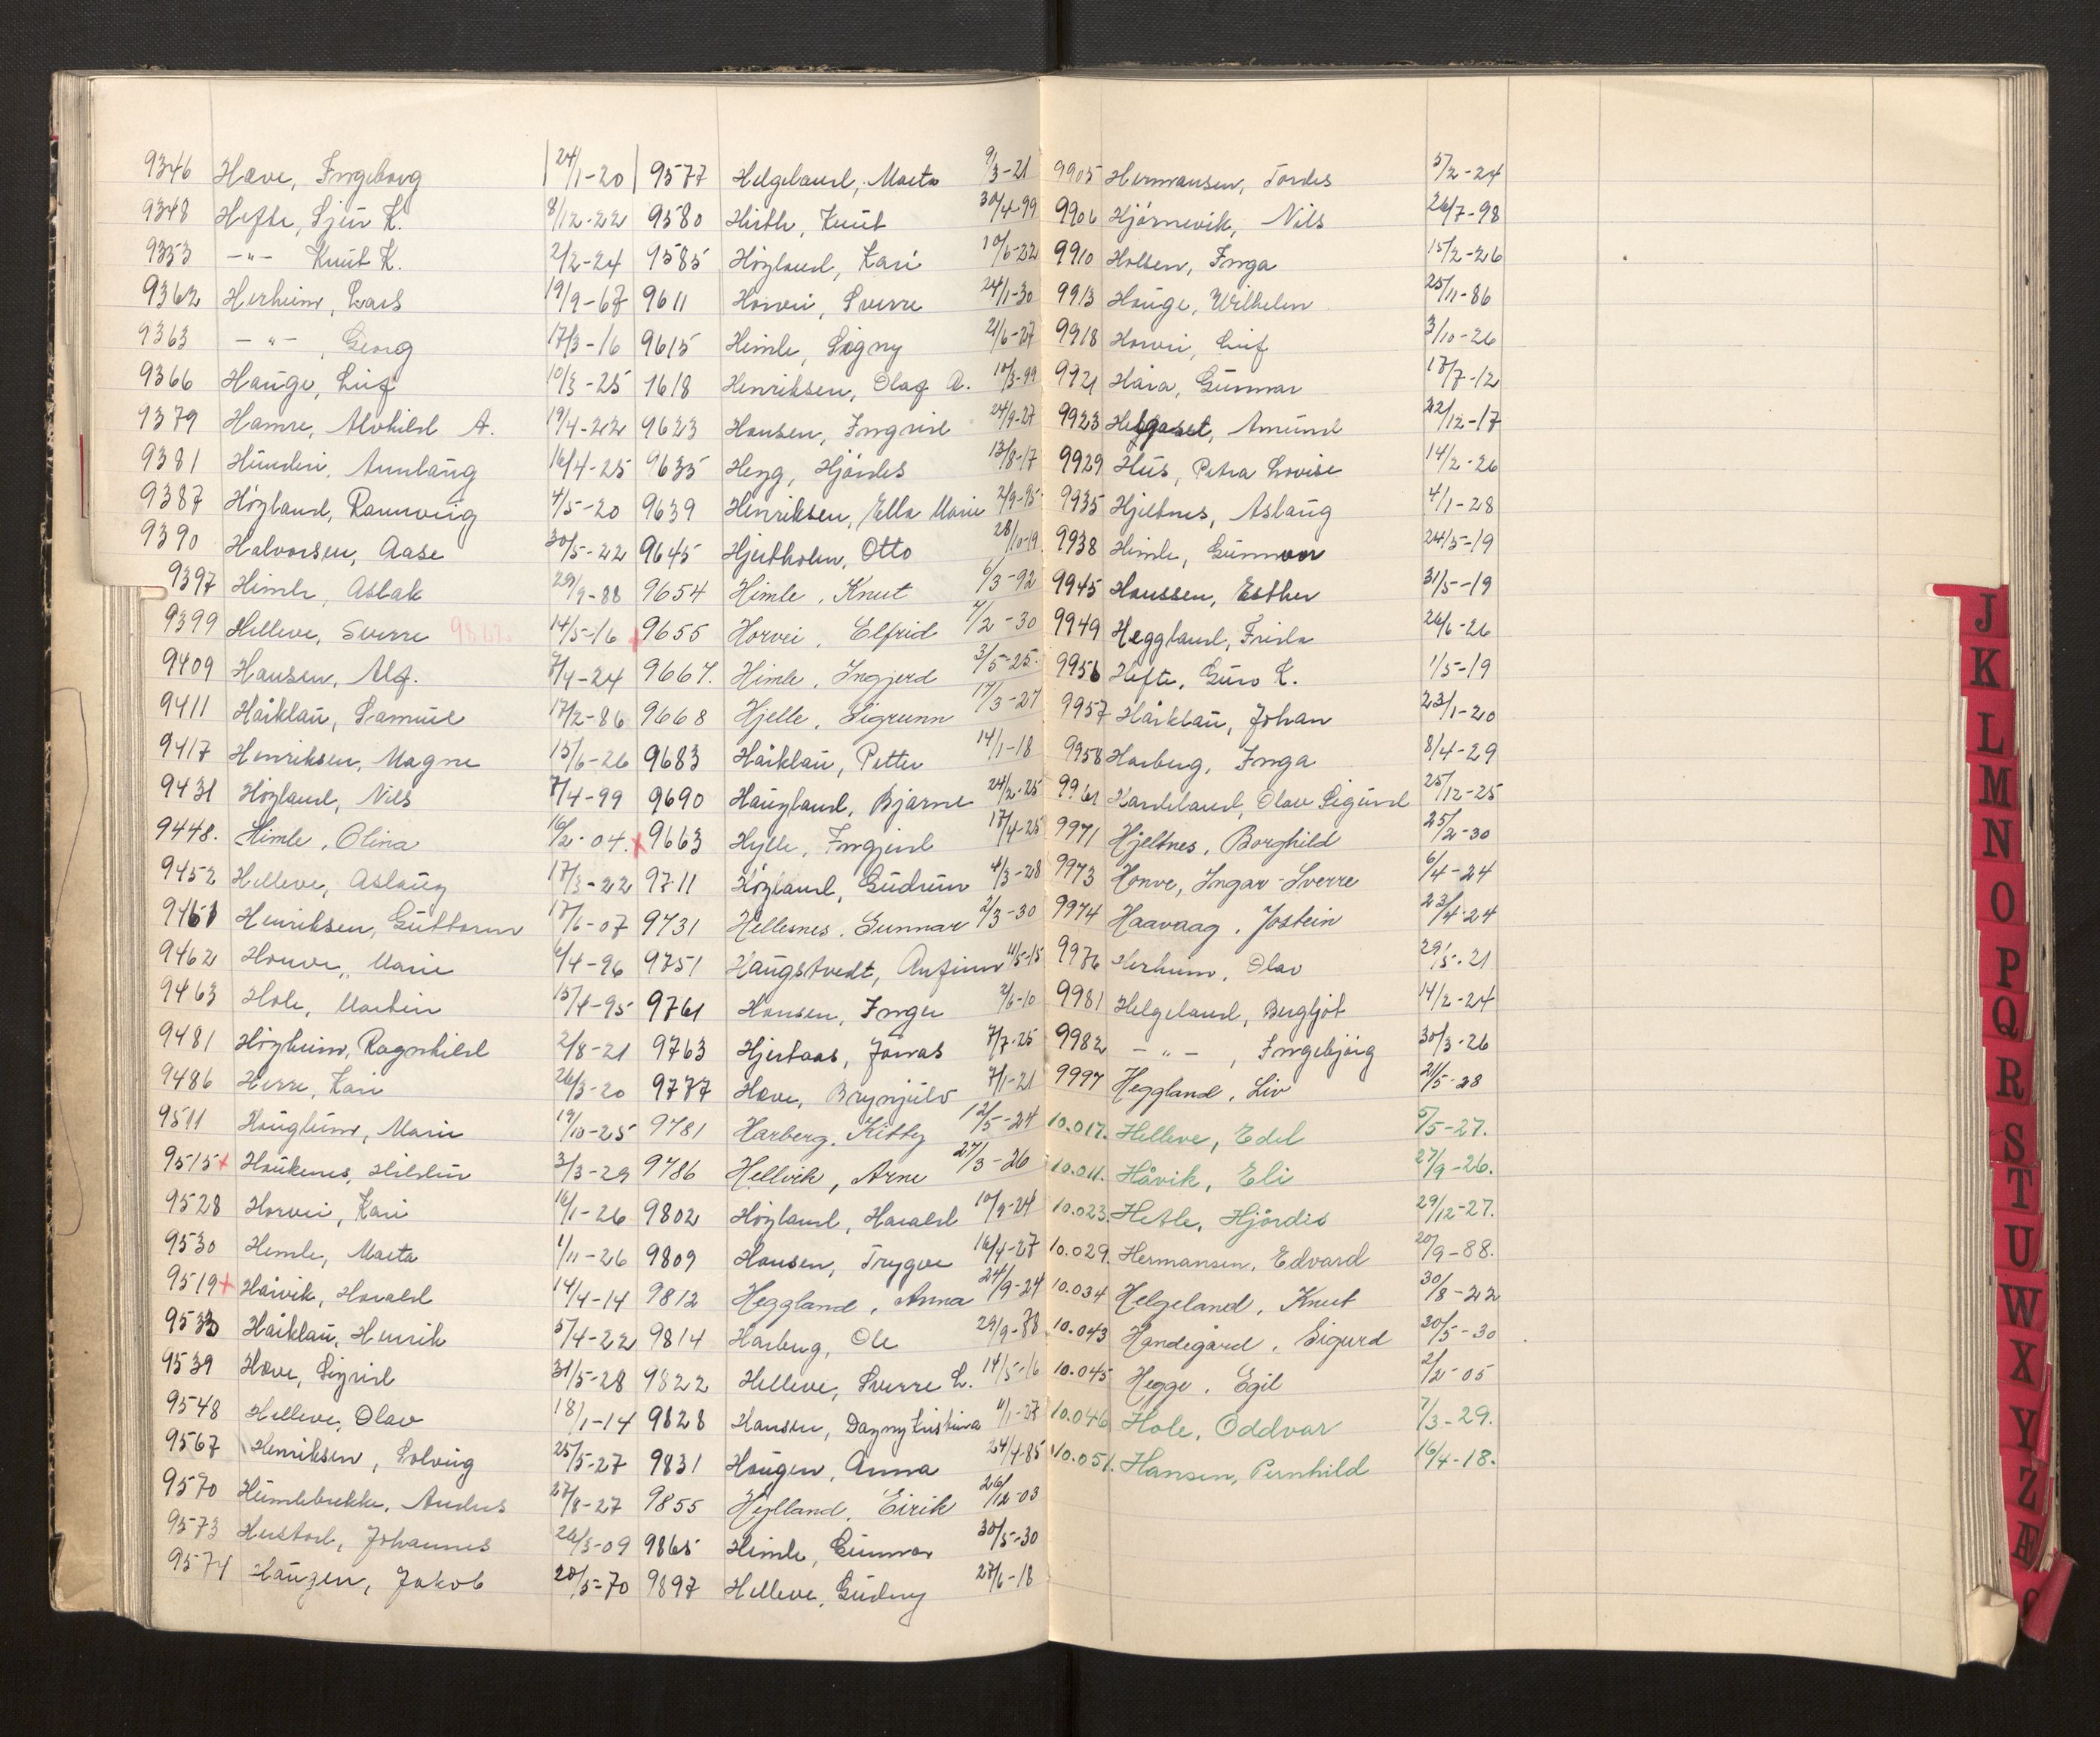 9346 Hæve, Ingeborg 24/1-20
9348 Hefte, Sjur K. 8/12-22
9353 -"- Knut K. 2/2-24
9362 Herheim, Lars 19/9-67
9363 -"-, Georg 17/3-16
9366 Hauge, Leif 10/3-25
9379 Hamre, Alvhild A. 19/4-22
9381 Hunderi, Annlaug 16/4-25
9387 Høyland, Rannveig 4/5-20
9390 Halvorsen, Aase 30/5-22
9397 Himle, Aslak 29/9-88
9399 Helleve, Sverre 14/5-16
9409 Hansen, Alf. 7/4-24
9411 Håiklau, Samuel 17/2-86
9417 Henriksen, Magne 15/6-26
9431 Høyland, Nils 7/4-99
9448. Himle, Olina 16/2-04.
9452 Helleve, Aslaug 17/3-22
9461 Henriksen, Guttorm 17/6-07
9462 Honve, Marie 6/4-96
9463 Hole, Martin 15/4-95
9481 Høyheim, Ragnhild 2/8-21
9486 Herre, Kari 26/3-20
9511 Haugheim, Marie 19/10-25
9515+ Haukenes, Hildur 3/3-29
9528 Horvei, Kari 16/1-26
9530 Himle, Marta 1/11-26
9519+ Håvik, Harald 14/4-14
9533 Håiklau, Henrik 5/4-22
9539 Hæve, Sigrid 31/5-28
9548 Helleve, Olav 18/1-14
9567 Henriksen, Solveig 25/5-27
9570 Humlebrekke, Anders 27/8-27
9573 Hustad, Johannes 26/3-09
9574 Haugen, Jakob 20/5-70
9577 Helgeland, Marta 9/3-21
9580 Hirth, Knut 30/4-99
9585 Høyland, Kari 10/6-22
9611 Horvei, Sverre 24/1-30
9615 Himle, Signy 21/6-27
1618 Henriksen, Olaf A. 10/3-99
9623 Hansen, Ingrid 24/9-27
9635 Heyg, Hjørdes 13/8-17
9639 Henriksen, Ella Marie 2/9-95
9645 Hjertholm, Otto 28/10-19
9654 Himle, Knut 6/3-92
+9655 Horvei, Elfrid 7/2-30
9667. Himle, Ingjerd 3/5-25
9668 Hjelle, Sigrunn 17/3-27
9683 Håiklau, Petter 14/1-18
9690 Haugland, Bjarne 24/2-25
+9663 Hylle, Ingjerd 17/4-25
9711 Høyland, Gudrun 4/3-28
9731 Hellesnes, Gunnar 2/3-30
9751 Haugstvedt, Anfinn 11/5-15
9761 Hansen, Inger 2/6-10
9763 Hjertaas, Jonas 7/7-25
9777 Hæve, Brynjulv 7/1-21
9781 Harberg, Kitty 12/5-24
9786 Hellvik, Arne 27/3-26
9802 Høyland, Harald 10/9-24
9809 Hansen, Trygve 16/4-27
9812 Heggland, Anna 24/9-24
9814 Harberg, Ole 29/9-78
9822 Helleve, Sverre L. 14/5-16
9828 Hansen, Dagny Kristina 11/1-23
9831 Haugen, Anna 24/4-85
9855 Heylland, Eirik 26/12-03
9865 Himle, Gunnar 30/5-30
9897 Helleve, Gudny 27/6-18
9905 Hermansen, Tordes 5/2-24
9906 Hjørnevik, Nils 26/7-98
9910 Holsen, Inga 15/2-26
9913 Hauge, Wilhelm 25/11-86
9918 Horvei, Leif 3/10-26
9921 Håra, Gunnar 17/7-12
9923 Helgaset, Amund 22/12-17
9929 Hus, Petra Lovise 14/2-26
9935 Hjeltnes, Aslaug 4/1-28
9938 Himle, Gunnvor 24/5-19
9945 Haussen, Esther 31/5-19
9949 Heggland, Frida 26/6-26
9956 Hefte, Guro K. 1/5-19
9957 Håiklau, Johan 23/1-20
9958 Harberg, Inga 8/4-29
9961 Handeland, Olav Sigurd 25/12-25
9971 Hjeltnes, Borghild 25/2-30
9973 Honve, Ingar-Sverre 6/4-24
9974 Haavaag, Jostein 23/4-24
9976 Herheim, Olav 29/5-21
9981 Helgeland, Bergljot 14/2-24
9982 -"-, Ingebjørg 30/3-26
9997 Heggland, Liv 21/5-28
10.017. Helleve, Edel 5/5-27.
10.011. Håvik, Eli 27/9-26.
10.023. Hetle, Hjørdis 29/12-27.
10.029. Hermansen, Edvard 20/9-88.
10.034 Helgeland, Knut 30/8-22
10.043 Handegård, Sigurd 20/5-30
10.045 Hegge, Egil 2/2-05
10.046 Hole, Oddvar 7/3-29.
10.051. Hansen, Pernhild 16/4-18.
J
K
L
M
N
O
P
Q
R
S
T
U
W
X
Y
Z
Æ